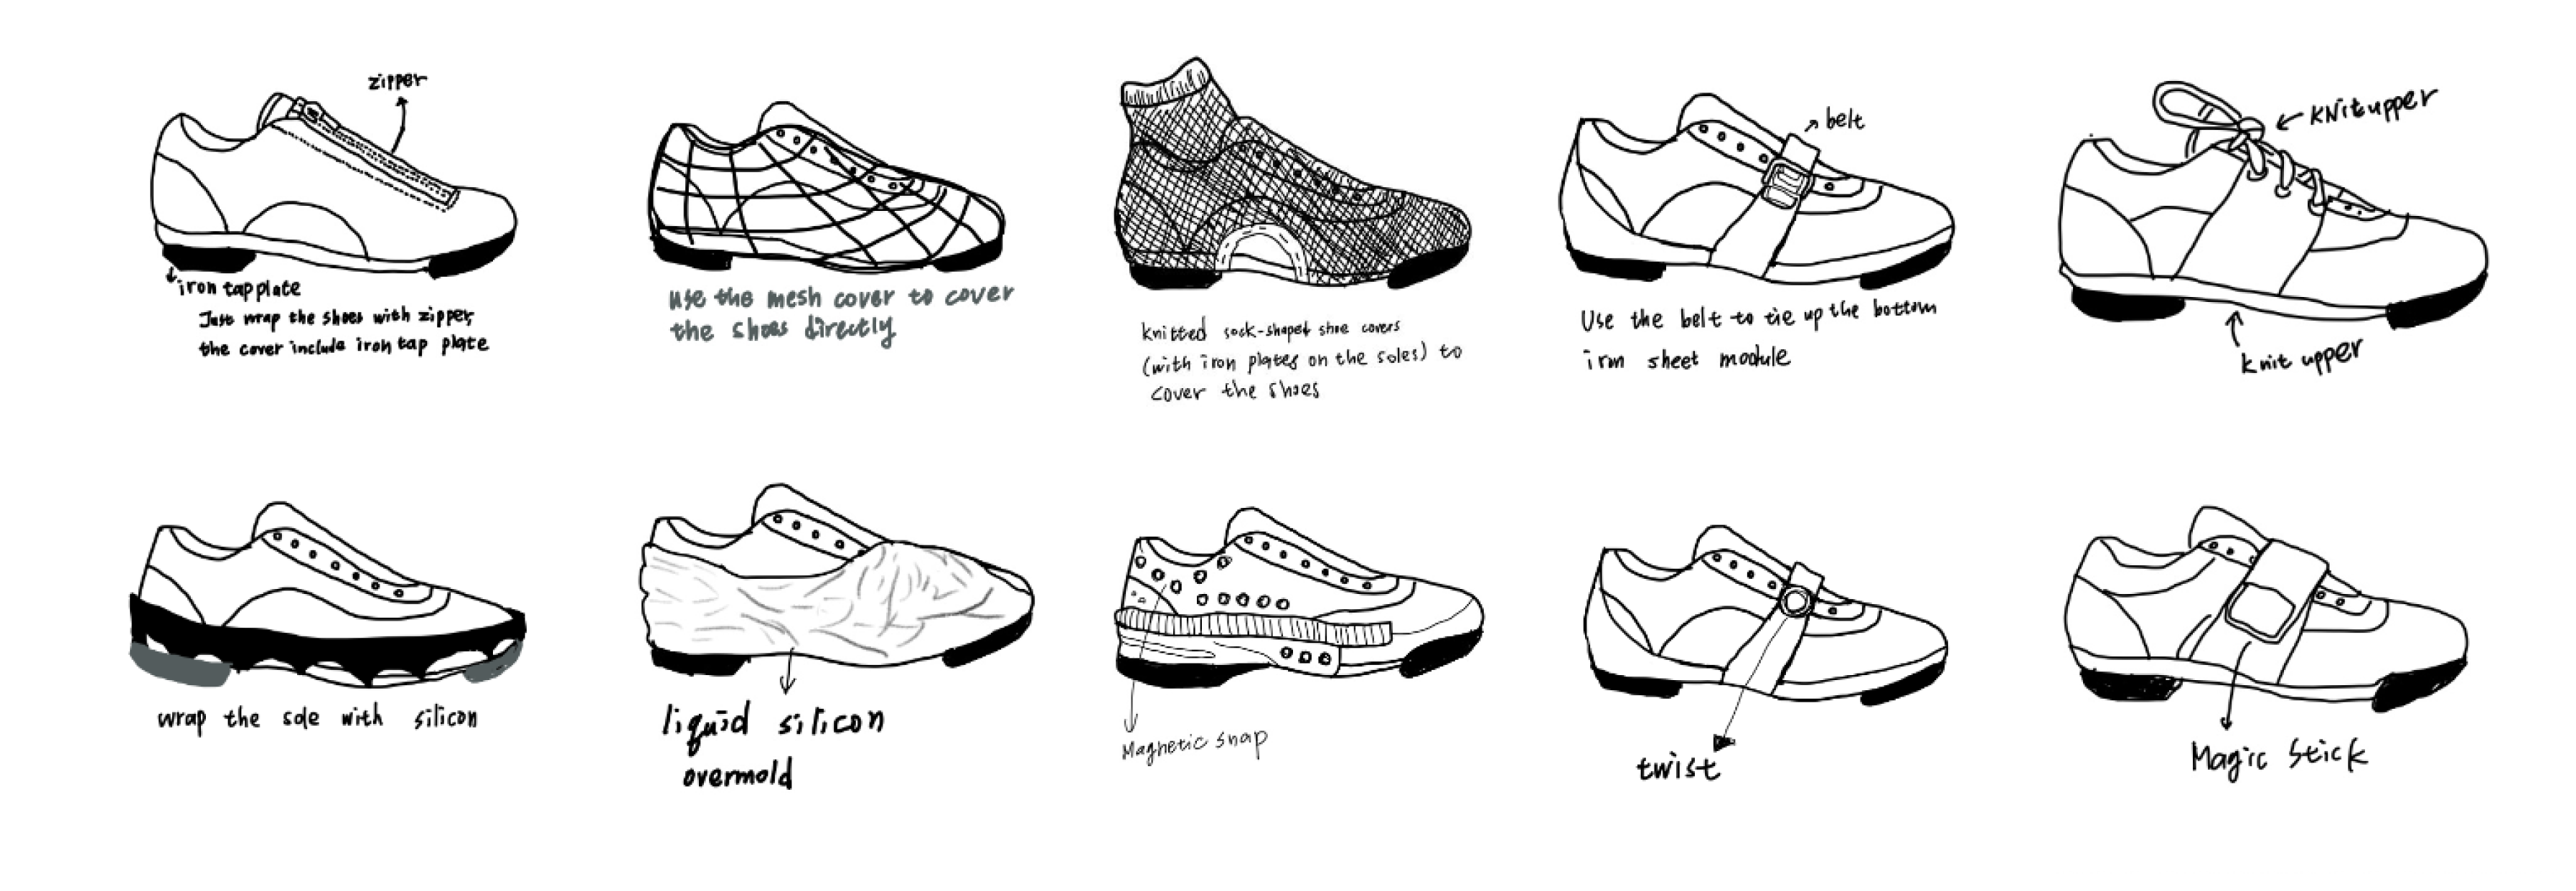 zipper
iron tap plate
Just wrap the shoes with zipper,
the cover include iron tap plate
use the mesh cover to cover
the shoes directly
knitted sock-shaped shoe covers
(with iron plates on the soles) to
cover the shoes
belt
Use the belt to tie up the bottom
iron sheet module
KNit upper
knit upper
wrap the sole with silicon
liquid silicon
overmold
Magnetic snap
twist
Magic Stick